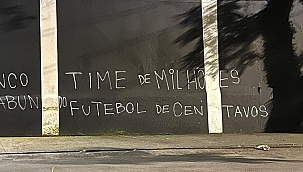 NCO TIME DE MILHÕES
ABUNDO FUTEBOL DE CENTAVOS